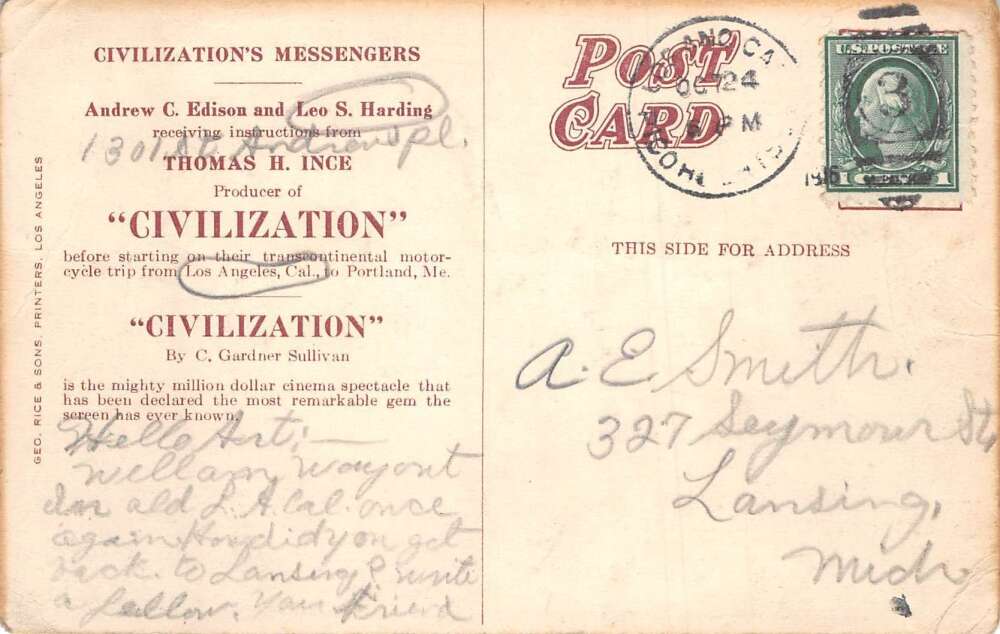 CIVILIZATION'S MESSENGERS
Andrew C. Edison and Leo S. Harding
receiving instructions from
1301 St. Andrews Pl.
THOMAS H. INCE
Producer of
"CIVILIZATION"
before starting on their transcontinental motor-
cycle trip from Los Angeles, Cal., to Portland, Me.
"CIVILIZATION"
By C. Gardner Sullivan
is the mighty million dollar cinema spectacle that
has been declared the most remarkable gem the
screen has ever known.
Hello Art:—
Well am way out
In old L.A. Cal. once
again How did you get
back to Lansing? write
a fellow. Your friend
GEO. RICE & SONS, PRINTERS, LOS ANGELES
POST
CARD
OCT 24
PM
1916
U.S. POSTAGE
1 1
3
THIS SIDE FOR ADDRESS
A. E. Smith.
327 Seymour St.
Lansing,
Mich